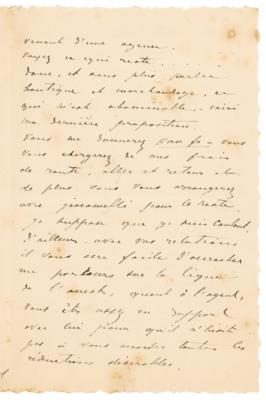 venant d'une agence.
Voyez ce qui reste . . . . . .
Donc, et sans plus parler
boutique et marchandage, ce
qui m'est abominable, voici
ma dernière proposition.
Vous me donnerez 500 fr - vous
vous chargerez de nos frais
de route, aller et retour et
de plus vous vous arrangerez
avec pour le reste.
Je suppose que je suis content,
D'ailleurs, avec vos relations
il vous sera facile d'arracher
un parcours sur la ligne
de l'ouest, quant à l'agent,
vous êtes assez en rapport
avec lui pour qu'il n'hésite
pas à vous accorder toutes les
réductions désirables.